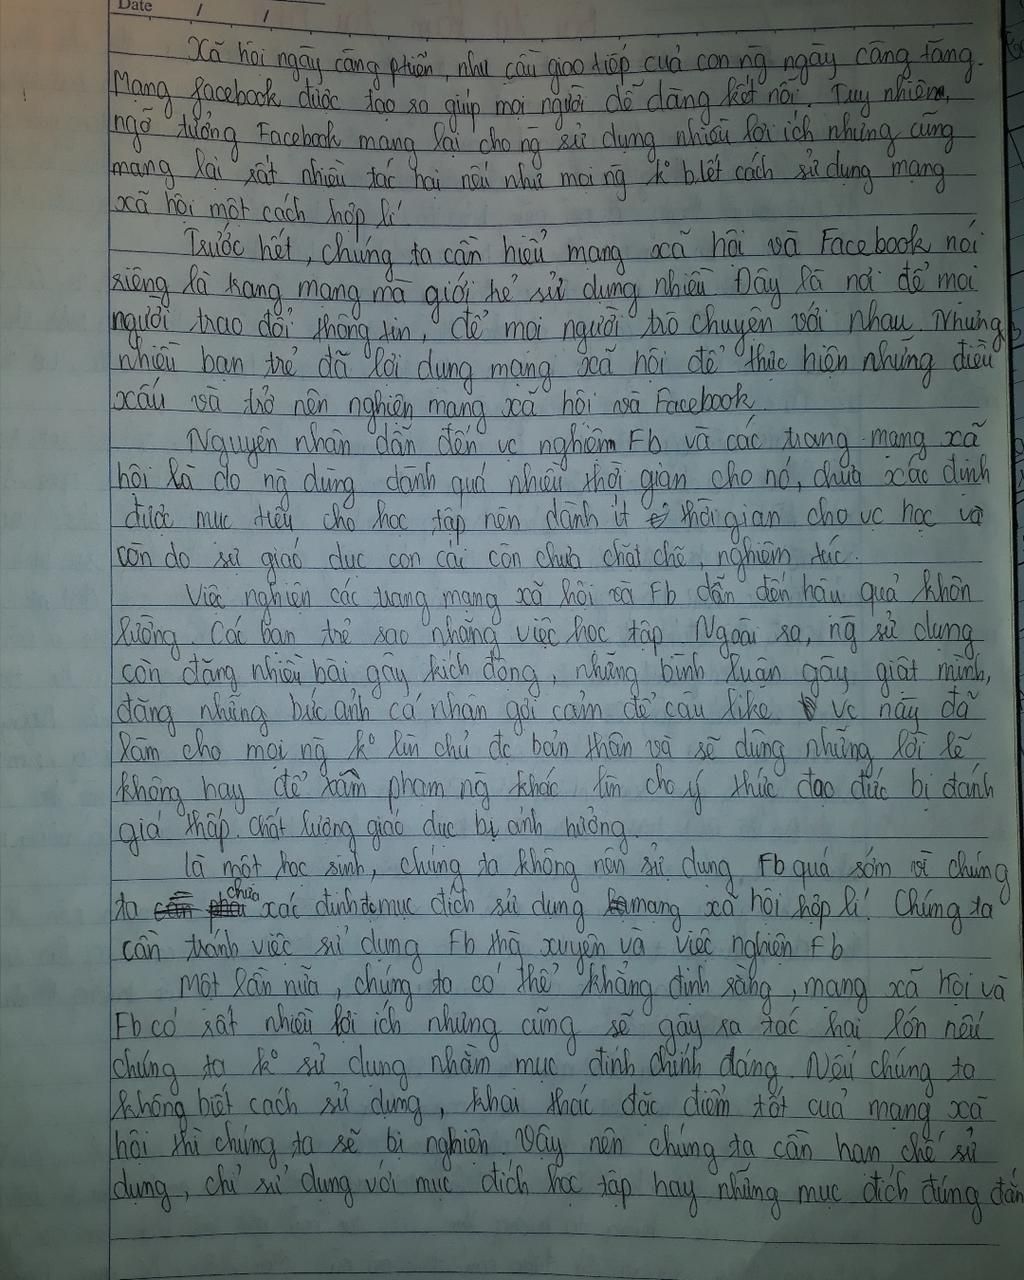 Date / /
Xã hội ngày càng ptriển, nhu cầu giao tiếp của con ng ngày càng tăng.
Mạng facebook được tạo ra giúp mọi người dễ dàng kết nối. Tuy nhiên,
ngỡ tưởng Facebook mang lại cho ng sử dụng nhiều lợi ích nhưng cũng
mang lại rất nhiều tác hại nếu như mọi ng k biết cách sử dụng mạng
xã hội một cách hợp lí
Trước hết, chúng ta cần hiểu mạng xã hội và Facebook nói
riêng là trang mạng mà giới trẻ sử dụng nhiều Đây là nơi để mọi
người trao đổi thông tin, để mọi người trò chuyện với nhau. Nhưng
nhiều bạn trẻ đã lợi dụng mạng xã hội để thực hiện những điều
xấu và trở nên nghiện mạng xã hội và Facebook.
Nguyên nhân dẫn đến vc nghiện Fb và các trang mạng xã
hội là do ng dùng dành quá nhiều thời gian cho nó, chưa xác định
được mục tiêu cho học tập nên dành ít thời gian cho vc học và
còn do sự giáo dục con cái còn chưa chặt chẽ, nghiêm túc.
Việc nghiện các trang mạng xã hội và Fb dẫn đến hậu quả khôn
lường. Các bạn trẻ sao nhãng việc học tập. Ngoài ra, ng sử dụng
còn đăng nhiều bài gây kích động, những bình luận gây giật mình,
đăng những bức ảnh cá nhân gợi cảm để câu like. vc này đã
làm cho mọi ng k° làm chủ đc bản thân và sẽ dùng những lời lẽ
không hay để xâm phạm ng khác làm cho ý thức đạo đức bị đánh
giá thấp. Chất lượng giáo dục bị ảnh hưởng.
Là một học sinh, chúng ta không nên sử dụng Fb quá sớm vì chúng
ta chưa xác định đc mục đích sử dụng mạng xã hội hợp lí. Chúng ta
cần tránh việc sử dụng Fb thg xuyên và việc nghiện Fb
Một lần nữa, chúng ta có thể khẳng định rằng, mạng xã hội và
Fb có rất nhiều lợi ích nhưng cũng sẽ gây ra tác hại lớn nếu
chúng ta k° sử dụng nhằm mục đính chính đáng. Nếu chúng ta
không biết cách sử dụng, khai thác đặc điểm tốt của mạng xã
hội thì chúng ta sẽ bị nghiện. Vậy nên chúng ta cần hạn chế sử
dụng, chỉ sử dụng với mục đích học tập hay những mục đích đúng đắn